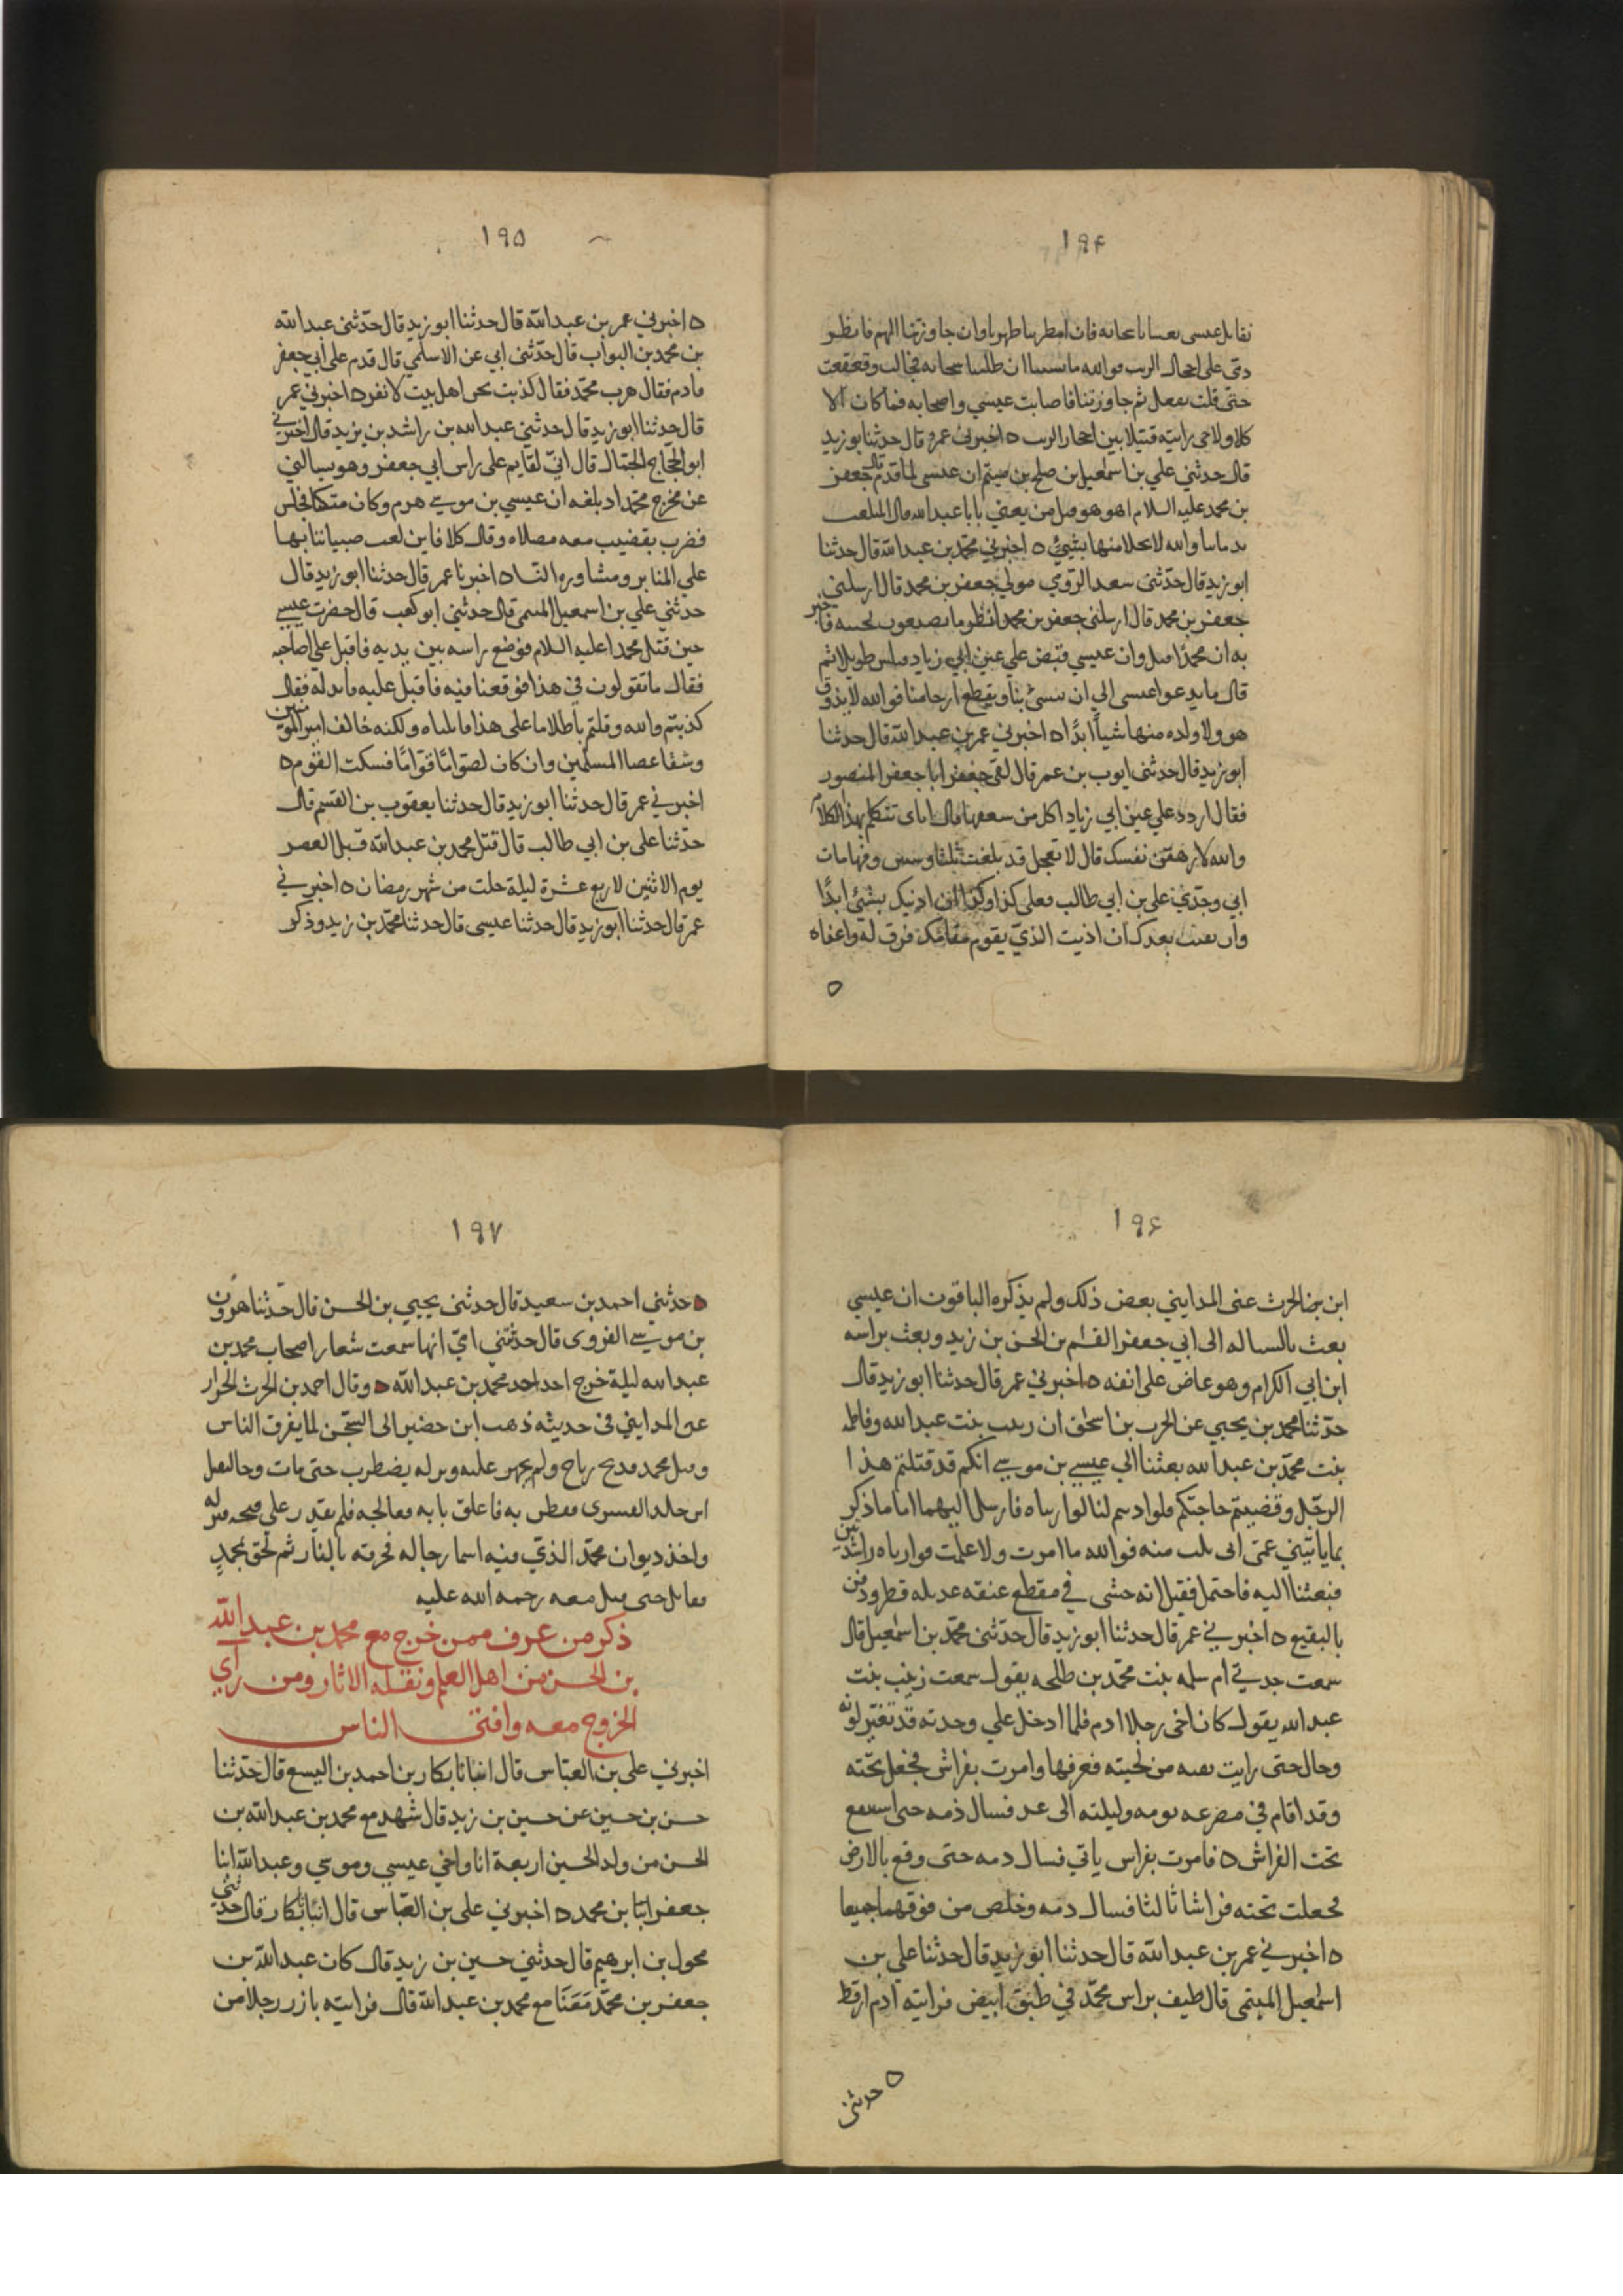 ١٩۴
نقاتل عيسى فان امطرنا طهرنا وان جاوزتنا اليهم فانظرو
دمى على احجار الزيت فوالله ان سحابه فجالت وقعقعت
حتى قلت تفعل ثم جاوزتنا فاصابت عيسي واصحابه فما كان الا
كلا ولا حتى رايته قتيلا بين احجار الزيت ٥ اخبرني عمرو قال حدثنا بوزيد
قال حدثني علي بن اسمعيل بن صلح بن ميثم ان عيسى لما قدم قال جعفر
بن محمد عليه السلام اهو هو قيل من يعني يا با عبدالله قال المتلعب
بدمائنا والله لا يخلا منها بشيئ ٥ اخبرني محمد بن عبدالله قال حدثنا
ابوزيد قال حدثنى سعد الرومي مولي جعفر بن محمد قال ارسلني
جعفر بن محمد قال ارسلنى جعفر بن محمد انظر ما يصنعون فاخبر
به ان محمدا قتل وان عيسي قبض علي عين ابي زياد طويلا ثم
قال ما يدعوا عيسى الي ان يسئ بنا ويقطع ارحامنا فوالله لا يذوق
هو ولا ولده منها شيأ ابدا ٥ اخبرني عمر بن عبدالله قال حدثنا
ابوزيد قال حدثنى ايوب بن عمر قال لقى جعفر ابا جعفر المنصور
فقال اردد علي عين ابي زياد اكل من سعفها قال اياى تتكلم بهذا الكلام
والله لازهقن نفسك قال لا تعجل قد بلغت ثلثا وستين وفيها مات
ابي وجدي علي بن ابي طالب فعلى كذا وكذا ان اذيتك بشئ ابدا
وان بقيت بعدك ان اذيت الذي يقوم مقامك فرق له واعفاه
٥
١٩۵
٥ اخبرني عمر بن عبدالله قال حدثنا ابوزيد قال حدثنى عبدالله
بن محمد بن البواب قال حدثنى ابي عن الاسلمي قال قدم على ابي جعفر
قادم فقال هرب محمد فقال كذبت نحن اهل بيت لا نفر ٥ اخبرني عمر
قال حدثنا ابوزيد قال حدثني عبدالله بن راشد بن يزيد قال اخبرني
ابو الحجاج الجمال قال اني لقايم على راس ابي جعفر وهو يسالني
عن مخرج محمد اذ بلغه ان عيسي بن موسي هزم وكان متكئا فجلس
فضرب بقضيب معه مصلاه وقال كلا فاين لعب صبياننا بها
علي المنابر ومشاوره النسا ٥ اخبرنا عمر قال حدثنا ابوزيد قال
حدثني علي بن اسمعيل الميثمى قال حدثني ابو كعب قال حضرت عيسي
حين قتل محمدا عليه السلام فوضع راسه بين يديه فاقبل على اصاحبه
فقال ما تقولون في هذا فوقعنا فيه فاقبل عليه قايد له فقال
كذبتم والله وقلتم باطلا ما على هذا قاتلناه ولكنه خالف امير المومنين
وشقا عصا المسلمين وان كان لصواما قواما فسكت القوم ٥
اخبرني عمر قال حدثنا ابوزيد قال حدثنا يعقوب بن القسم قال
حدثنا على بن ابي طالب قال قتل محمد بن عبدالله قبل العصر
يوم الاثنين لاربع عشرة ليلة خلت من شهر رمضان ٥ اخبرني
عمر قال حدثنا ابوزيد قال حدثنا عيسى قال حدثنا محمد بن زيد وذكر
١٩۶
ابن الحرث عنى المدايني بعض ذلك ولم يذكره الباقون ان عيسي
بعث بالبساله الى ابي جعفر القسم بن الحسن بن زيد وبعث براسه
ابن ابي الكرام وهو عاض على انفه ٥ اخبرني عمر قال حدثنا ابوزيد قال
حدثنا محمد بن يحيى عن الحرث بن اسحق ان زينب بنت عبدالله وفاطمه
بنت محمد بن عبدالله بعثتا الي عيسي بن موسي انكم قد قتلتم هذا
الرجل وقضيتم حاجتكم فلو اذنتم لنا لواريناه فارسل اليهما اما ما ذكر
بما يا بنتي عمى اني نلت منه فوالله ما امرت ولا علمت فوارياه راشدتين
فبعثتا اليه فاحتمل فقيل انه حشى في مقطع عنقه عديله قطن ودفن
بالبقيع ٥ اخبرني عمر قال حدثنا ابوزيد قال حدثنى محمد بن اسمعيل قال
سمعت جدتي ام سلمه بنت محمد بن طلحه يقول سمعت زينب بنت
عبدالله يقول كان اخي رجلا ادم فلما ادخل علي وجدته قد تغير لونه
وحال حتى رايت بقيه من لحيته فعرفها وامرت بفراش فجعل تحته
وقد اقام في مصرعه يومه وليلته الى غد فسال دمه حتى استنقع
تحت الفراش ٥ فامرت بفراش ياتي فسال دمه حتى وقع بالارض
فجعلت تحته فراشا ثالثا فسال دمه وخلص من فوقهما جميعا
٥ اخبرني عمر بن عبدالله قال حدثنا ابوزيد قال حدثنا على بن
اسمعيل الميثمى قال طيف براس محمد في طبق ابيض فرايته آدم ارقط
٥ حدثنى
١٩٧
٥ حدثني احمد بن سعيد قال حدثنى يحيي بن الحسن قال حدثنا هرون
بن موسي الفروى قال حدثتني امي انها سمعت شعار اصحاب محمد بن
عبدالله ليلة خرج احد احد محمد بن عبدالله ٥ وقال احمد بن الحرث الخزاز
عن المدايني في حديثه ذهب ابن خضير الى السجن لما يفرق الناس
وقتل محمد فذبح رياح ولم يجهز عليه وتركه يضطرب حتى مات وجا ليقتل
ابن خالد القسرى ففطن به فاغلق بابه فعالجه فلم يقدر على فتحه فتركه
واخذ ديوان محمد الذي فيه اسما رجاله فحرقه بالنار ثم لحق بمحمد
فقاتل حتى قتل معه رحمه الله عليه
ذكر من عرف ممن خرج مع محمد بن عبدالله
بن الحسن من اهل العلم ونقله الاثار ومن رأي
الخروج معه وافتى الناس
اخبرني على بن العباس قال انبانا بكار بن احمد بن اليسع قال حدثنا
حسن بن حسين عن حسين بن زيد قال شهد مع محمد بن عبدالله بن
الحسن من ولد الحسين اربعة انا واخي عيسي وموسي وعبدالله ابنا
جعفر ابنا بن محمد ٥ اخبرني على بن العباس قال انبانا بكار قال حدثني
محول بن ابرهيم قال حدثني حسين بن زيد قال كان عبدالله بن
جعفر بن محمد معنا مع محمد بن عبدالله قال فرايته بازر رجلا من